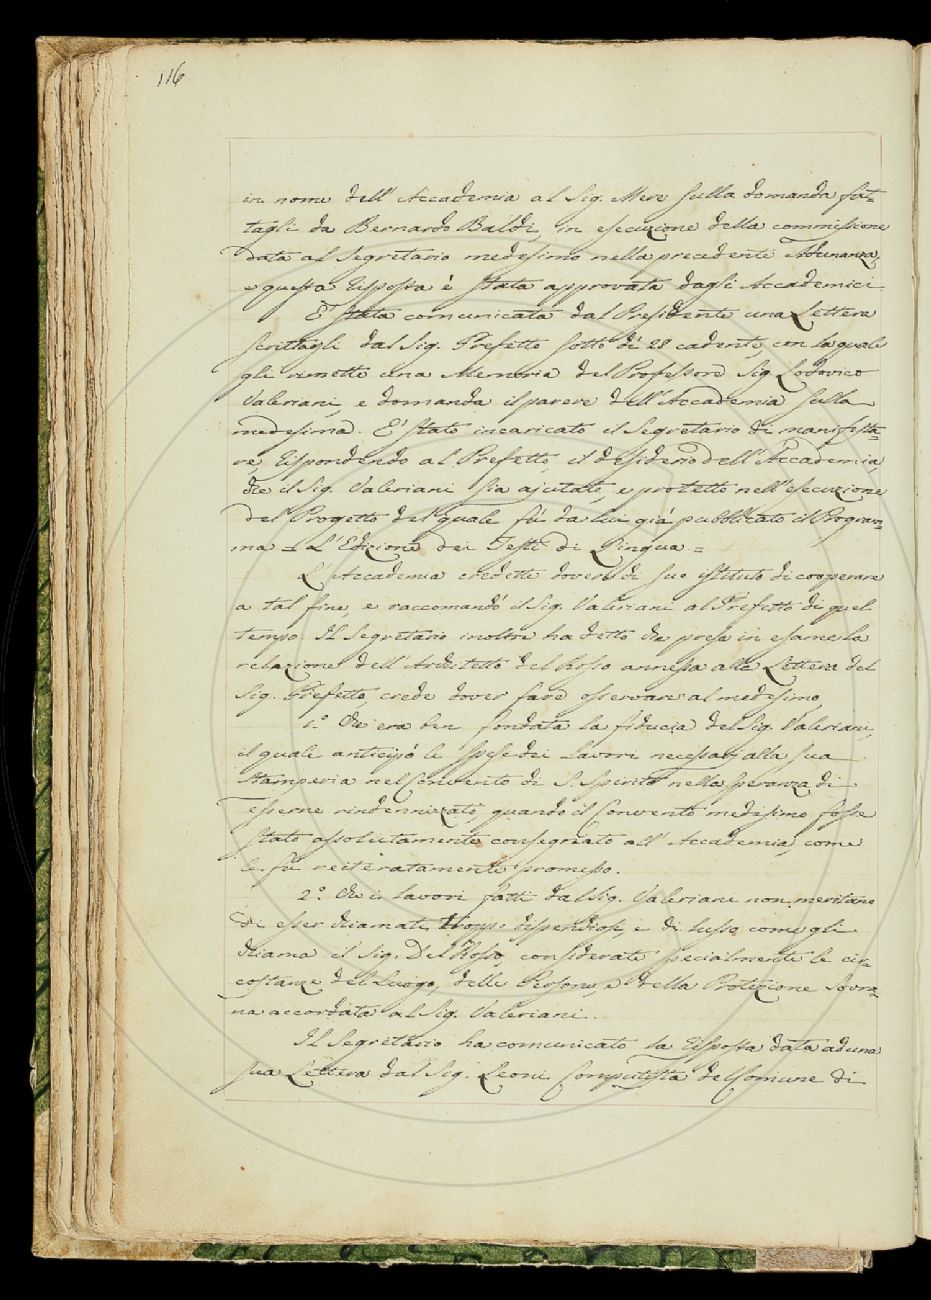 116
in nome dell'Accademia al Sig. Mere sulla domanda fat=
tagli da Bernardo Baldi, in esecuzione della commissione
data al Segretario medesimo nella precedente Adunanza,
e questa Risposta è stata approvata dagli Accademici
E' stata comunicata dal Presidente una Lettera
scrittagli dal Sig. Prefetto sotto dì 28 cadente, con la quale
gli rimette una Memoria del Professore Sig. Lodovico
Valeriani, e domanda il parere dell'Accademia sulla
medesima. E' stato incaricato il Segretario di manifesta=
re, rispondendo al Prefetto, il desiderio dell'Accademia,
che il Sig. Valeriani sia ajutato, e protetto nell'esecuzione
del Progetto del quale fù da lui già pubblicato il Program=
ma = L'Edizione dei Testi di Lingua =
L'Accademia credette dovere di suo istituto di cooperare
a tal fine e raccomandò il Sig. Valeriani al Prefetto di quel
tempo. Il Segretario inoltre ha detto che presa in esame la
relazione dell'Architetto del Rosso annessa alla Lettera del
Sig. Prefetto, crede dover fare osservare al medesimo
1.° Che era ben fondata la fiducia del Sig. Valeriani,
il quale anticipò le spese dei Lavori necessarj alla sua
Stamperia nel Convento di S. Spirito nella speranza di
esserne rindennizzato, quando il Convento medesimo fosse
stato assolutamente consegnato all'Accademia, come
le fù reiteratamente promesso.
2.° Che i Lavori fatti dal Sig. Valeriani non meritano
di esser chiamati troppo dispendiosi, e di lusso come gli
chiama il Sig. Del Rosso, considerate specialmente le cir=
costanze del Luogo, delle Persone, e della Protezione Sovra=
na accordata al Sig. Valeriani.
Il Segretario ha comunicato la Risposta data ad una
sua Lettera dal Sig. Leoni Computista del Comune di